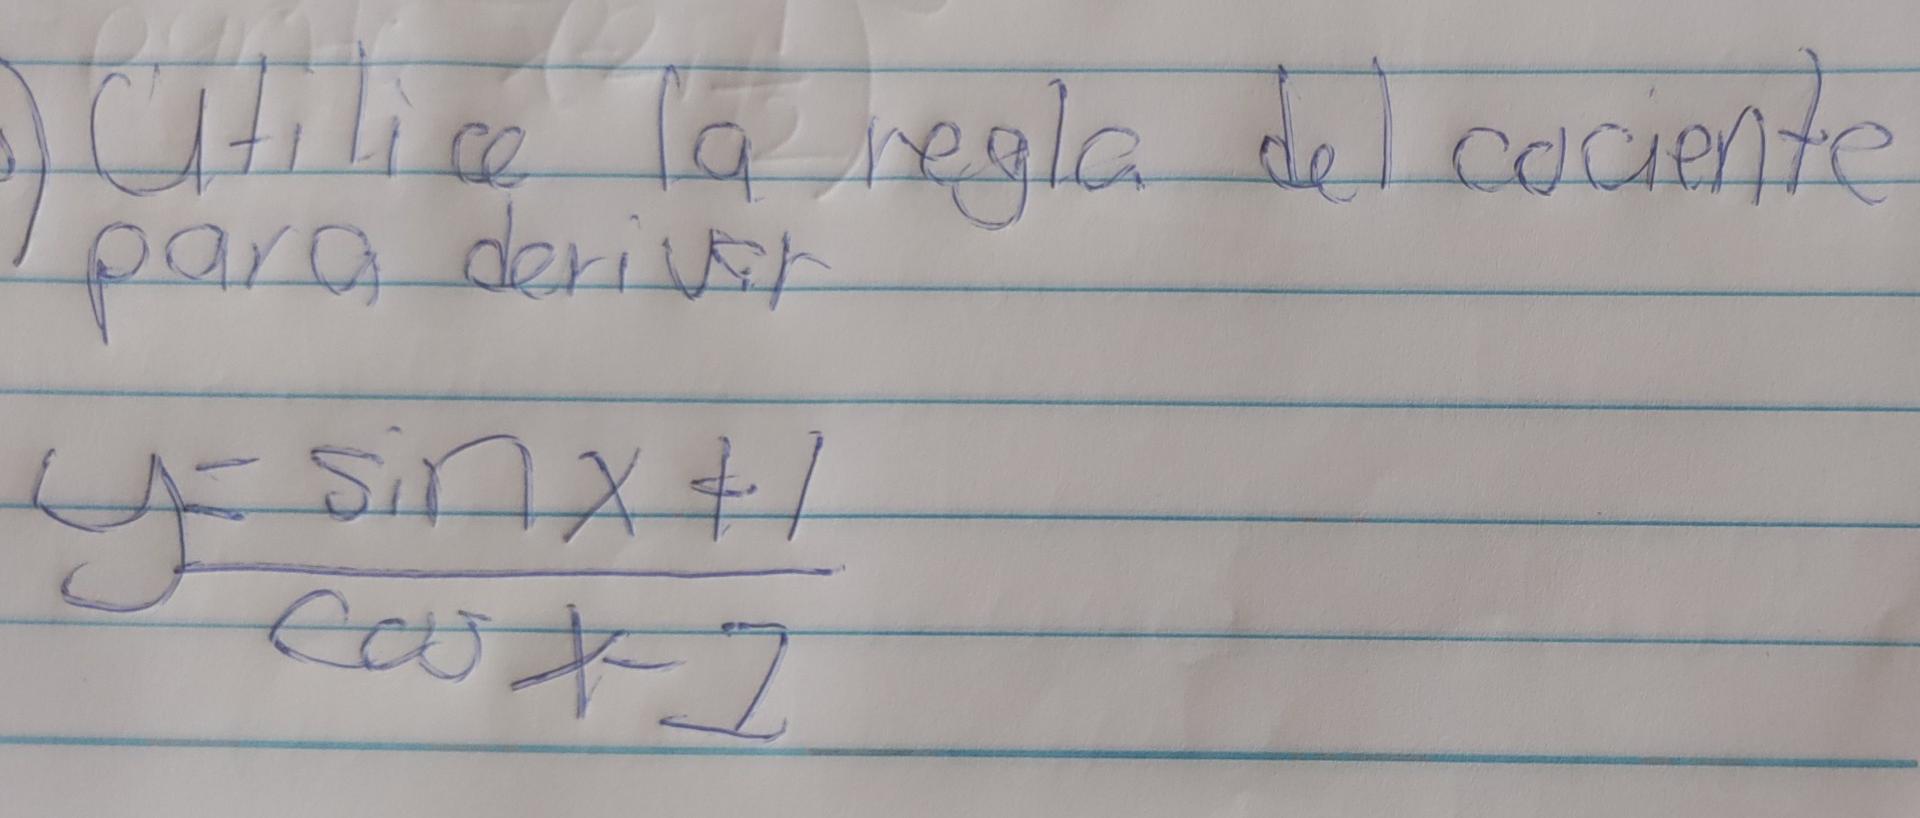 ) Utilice la regla del cociente
para derivar
y = sin x + 1
cos x - 2